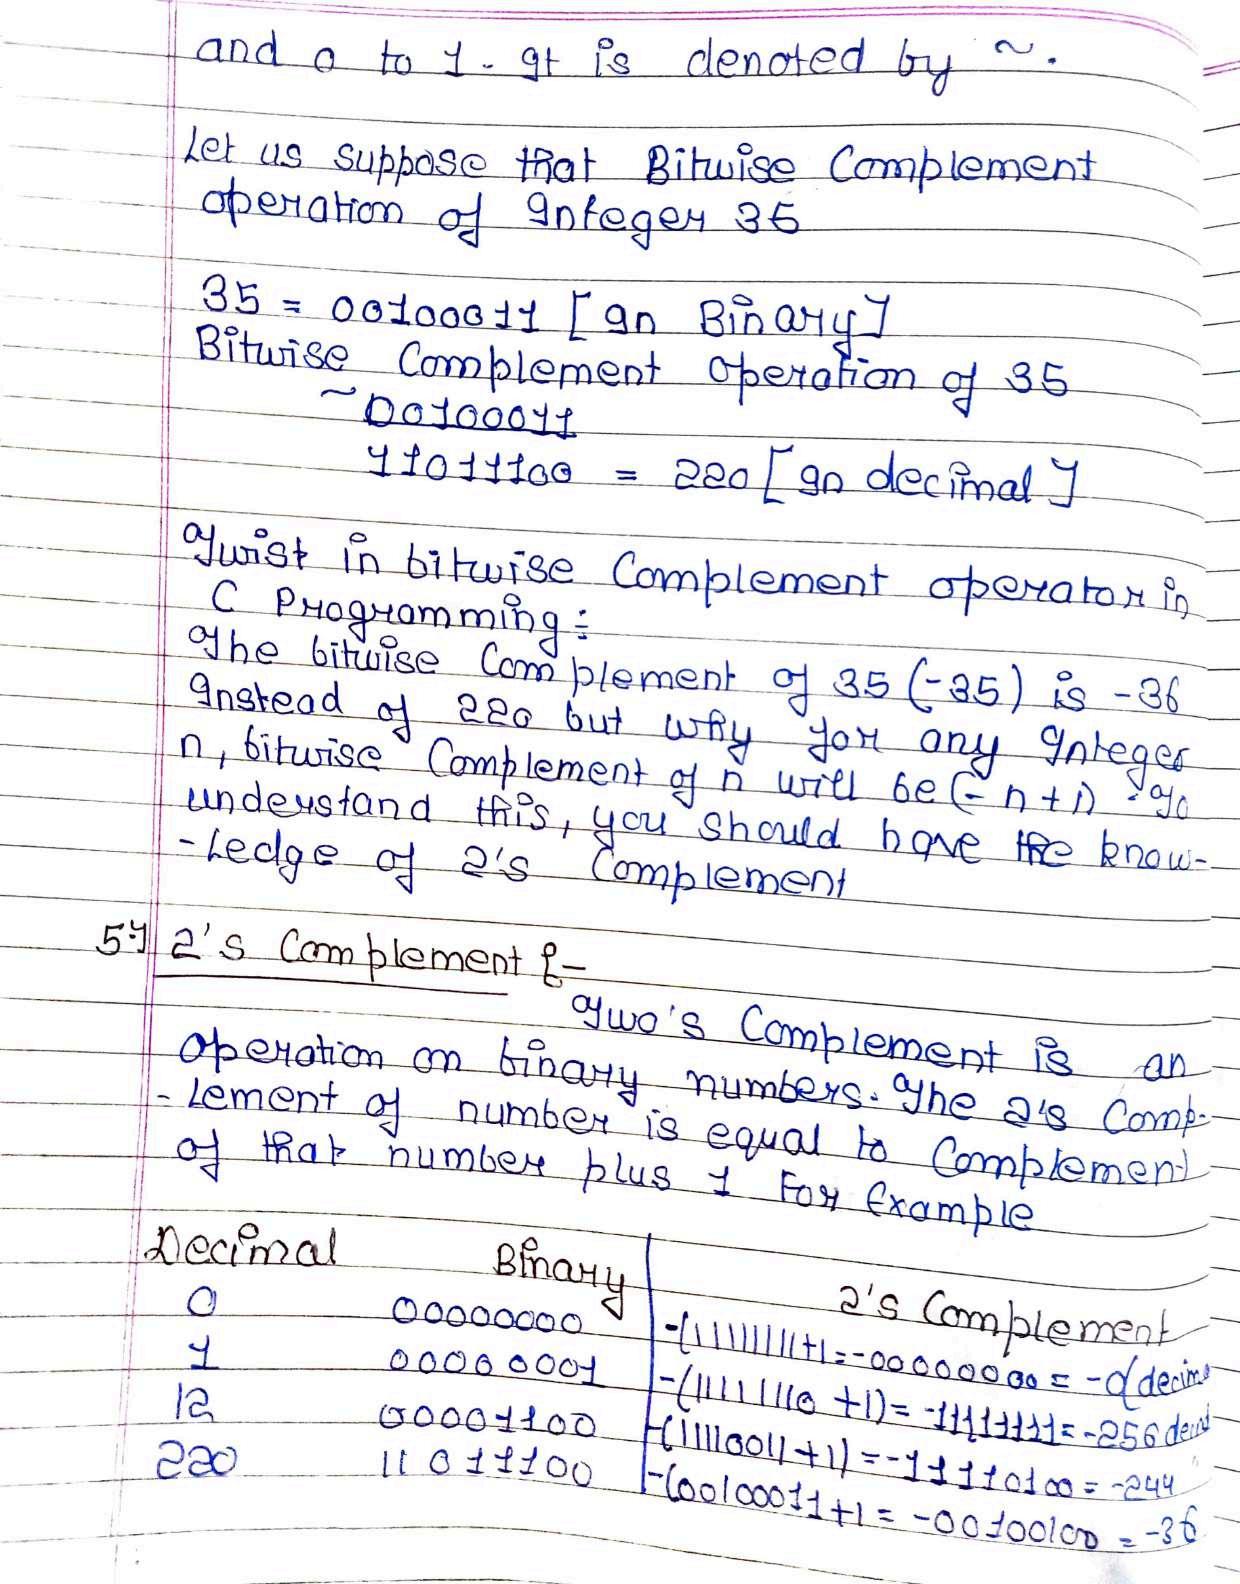 and 0 to 1. It is denoted by ~.
Let us suppose that Bitwise Complement
operation of Integer 35
35 = 00100011 [In Binary]
Bitwise Complement operation of 35
~00100011
11011100 = 220 [In decimal]
Twist in bitwise Complement operator in
C Programming:
The bitwise Complement of 35 (-35) is -36
Instead of 220 but why for any Integer
n, bitwise Complement of n will be (-n+1). To
understand this, you should have the know-
-ledge of 2's Complement
5) 2's Complement :-
Two's Complement is an
operation on binary numbers. The 2's Comp-
-lement of number is equal to Complement
of that number plus 1 For Example
Decimal Binary 2's Complement
0 00000000 -(11111111+1=-00000000 = -0(decima
1 00000001 -(11111110 +1)= -11111111=-256 decid
12 00001100 -(11110011+1) = -11110100 = -244 "
220 11011100 -(00100011+1 = -00100100 = -36